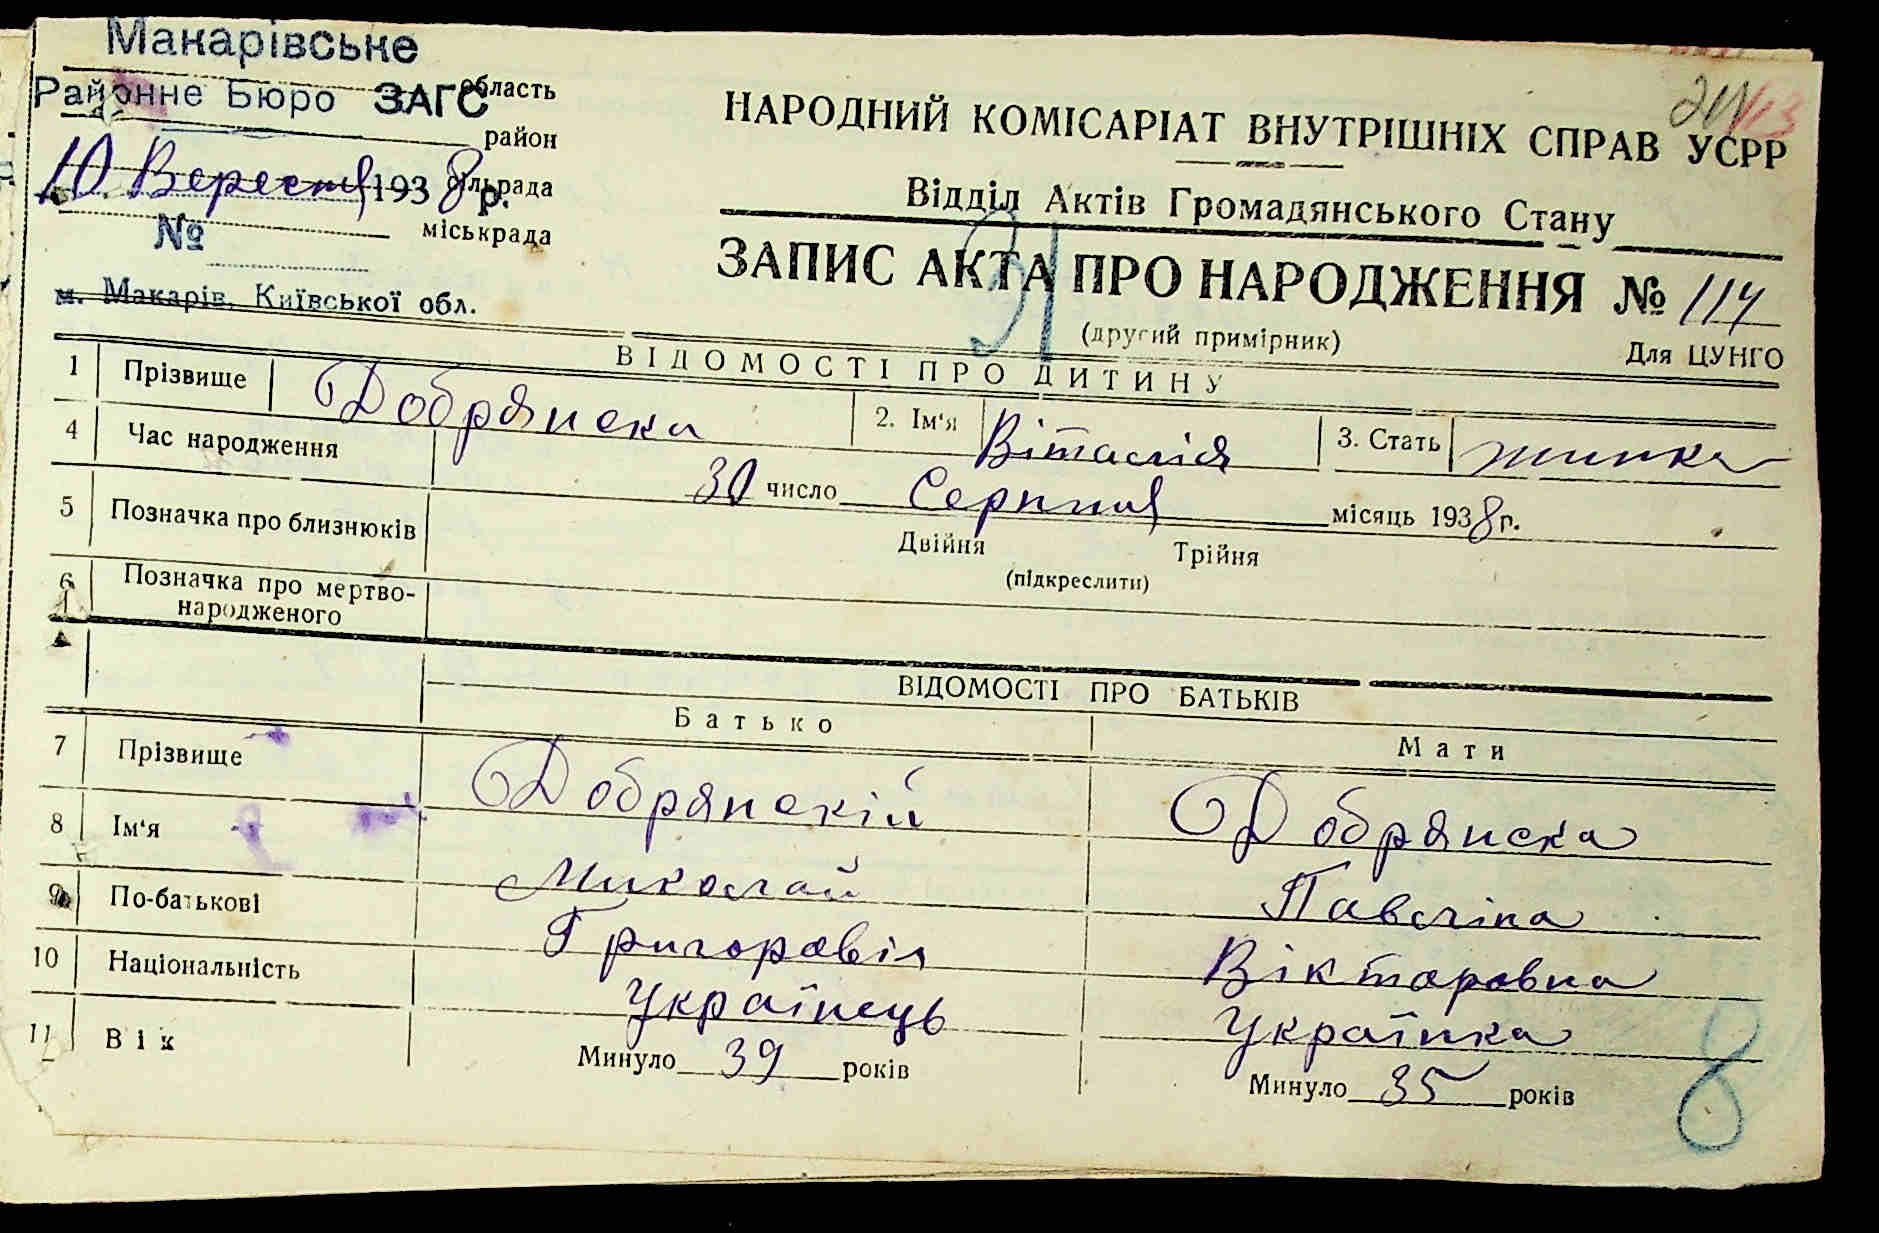 Макарівське
Районне Бюро ЗАГС
область
район
10 Вересня 1938 р.
сільрада
міськрада
№
м. Макарів, Київської обл.
НАРОДНИЙ КОМІСАРІАТ ВНУТРІШНІХ СПРАВ УСРР
Відділ Актів Громадянського Стану
ЗАПИС АКТА ПРО НАРОДЖЕННЯ № 114
(другий примірник)
Для ЦУНГО
ВІДОМОСТІ ПРО ДИТИНУ
1 Прізвище Добрянска 2. Ім'я Віталія 3. Стать жинка
4 Час народження 30 число Серпня місяць 1938 р.
5 Позначка про близнюків Двійня Трійня
(підкреслити)
6 Позначка про мертво-
народженого
ВІДОМОСТІ ПРО БАТЬКІВ
Батько Мати
7 Прізвище Добрянскій Добрянска
8 Ім'я Миколай Павліна
9 По-батькові Григоровіч Вікторовна
10 Національність Українець Українка
11 Вік Минуло 39 років Минуло 35 років
8